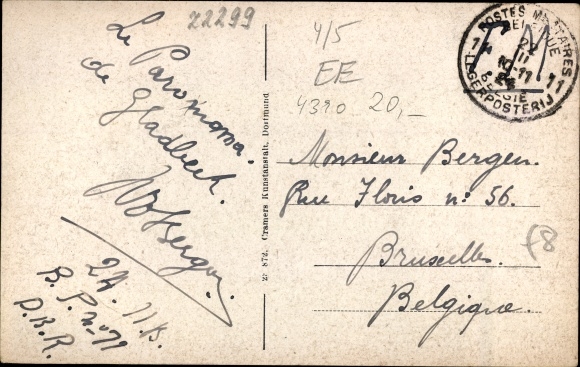 22299
Le Panorama
de Gladbeck.
B. P. n° 11
P.B.R.
2B 872. Cramers Kunstanstalt, Dortmund
4/5
EE
4320 20,-
POSTES MILITAIRES
BELGIQUE
11 11
LEGERPOSTERIJ
BELGIE
S.M.
Monsieur Bergen.
Rue Floris n° 56.
Bruxelles.
Belgique.
f8